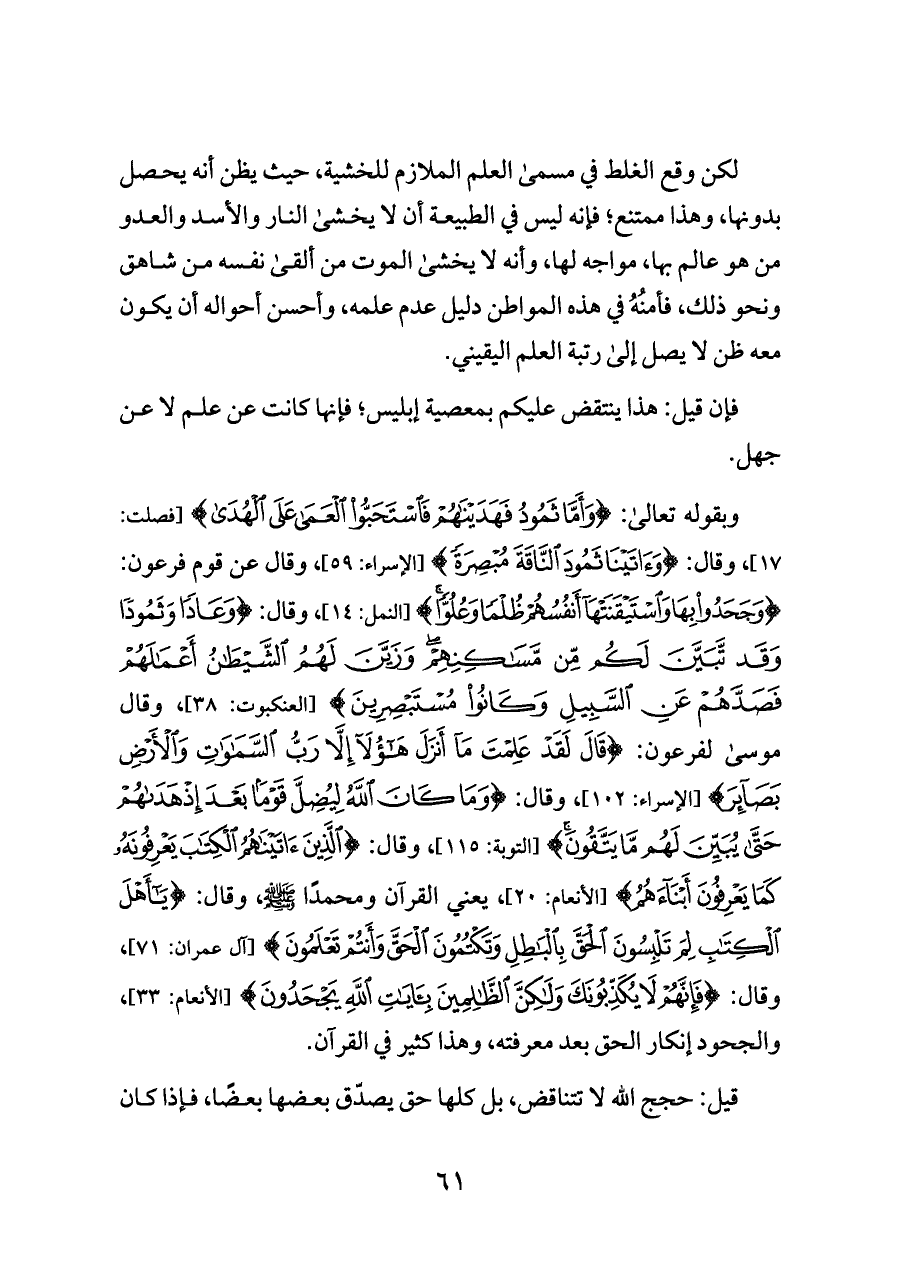 لكن وقع الغلط في مسمىٰ العلم الملازم للخشية، حيث يظن أنه يحصل
بدونها، وهذا ممتنع؛ فإنه ليس في الطبيعة أن لا يخشىٰ النار والأسد والعدو
من هو عالم بها، مواجه لها، وأنه لا يخشىٰ الموت من ألقىٰ نفسه من شاهق
ونحو ذلك، فأمنُهُ في هذه المواطن دليل عدم علمه، وأحسن أحواله أن يكون
معه ظن لا يصل إلىٰ رتبة العلم اليقيني.
فإن قيل: هذا ينتقض عليكم بمعصية إبليس؛ فإنها كانت عن علم لا عن
جهل.
وبقوله تعالىٰ: ﴿وَأَمَّا ثَمُودُ فَهَدَيْنَٰهُمْ فَٱسْتَحَبُّوا۟ ٱلْعَمَىٰ عَلَى ٱلْهُدَىٰ﴾ [فصلت:
١٧]، وقال: ﴿وَءَاتَيْنَا ثَمُودَ ٱلنَّاقَةَ مُبْصِرَةً﴾ [الإسراء: ٥٩]، وقال عن قوم فرعون:
﴿وَجَحَدُوا۟ بِهَا وَٱسْتَيْقَنَتْهَآ أَنفُسُهُمْ ظُلْمًا وَعُلُوًّا ۚ﴾ [النمل: ١٤]، وقال: ﴿وَعَادًا وَثَمُودَا۟
وَقَد تَّبَيَّنَ لَكُم مِّن مَّسَٰكِنِهِمْ ۖ وَزَيَّنَ لَهُمُ ٱلشَّيْطَٰنُ أَعْمَٰلَهُمْ
فَصَدَّهُمْ عَنِ ٱلسَّبِيلِ وَكَانُوا۟ مُسْتَبْصِرِينَ﴾ [العنكبوت: ٣٨]، وقال
موسىٰ لفرعون: ﴿قَالَ لَقَدْ عَلِمْتَ مَآ أَنزَلَ هَٰٓؤُلَآءِ إِلَّا رَبُّ ٱلسَّمَٰوَٰتِ وَٱلْأَرْضِ
بَصَآئِرَ﴾ [الإسراء: ١٠٢]، وقال: ﴿وَمَا كَانَ ٱللَّهُ لِيُضِلَّ قَوْمًۢا بَعْدَ إِذْ هَدَىٰهُمْ
حَتَّىٰ يُبَيِّنَ لَهُم مَّا يَتَّقُونَ ۚ﴾ [التوبة: ١١٥]، وقال: ﴿ٱلَّذِينَ ءَاتَيْنَٰهُمُ ٱلْكِتَٰبَ يَعْرِفُونَهُۥ
كَمَا يَعْرِفُونَ أَبْنَآءَهُمُ﴾ [الأنعام: ٢٠]، يعني القرآن ومحمدًا ﷺ، وقال: ﴿يَٰٓأَهْلَ
ٱلْكِتَٰبِ لِمَ تَلْبِسُونَ ٱلْحَقَّ بِٱلْبَٰطِلِ وَتَكْتُمُونَ ٱلْحَقَّ وَأَنتُمْ تَعْلَمُونَ﴾ [آل عمران: ٧١]،
وقال: ﴿فَإِنَّهُمْ لَا يُكَذِّبُونَكَ وَلَٰكِنَّ ٱلظَّٰلِمِينَ بِـَٔايَٰتِ ٱللَّهِ يَجْحَدُونَ﴾ [الأنعام: ٣٣]،
والجحود إنكار الحق بعد معرفته، وهذا كثير في القرآن.
قيل: حجج الله لا تتناقض، بل كلها حق يصدّق بعضها بعضًا، فإذا كان
٦١